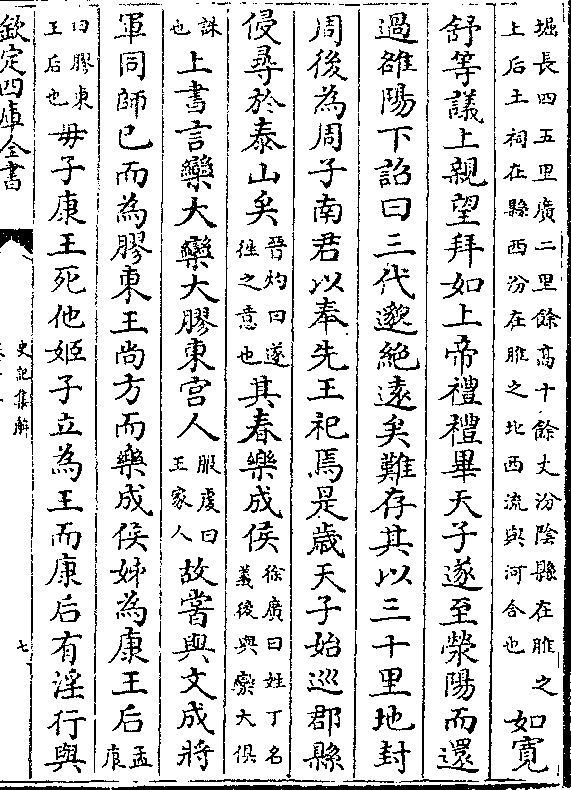 堀長四五里廣二里餘髙十餘丈汾隂縣在脽之
上后土祠在縣西汾在脽之北西流與河合也
如寛
舒等議上親望拜如上帝禮禮畢天子遂至滎陽而還
過雒陽下詔曰三代邈絶逺矣難存其以三十里地封
周後為周子南君以奉先王祀焉是歲天子始巡郡縣
侵尋於泰山矣
晉灼曰遂
徃之意也
其春樂成侯
徐廣曰姓丁名
義後與欒大俱
誅
也
上書言欒大欒大膠東宫人
服䖍曰
王家人
故嘗與文成將
軍同師已而為膠東王尚方而樂成侯姊為康王后
孟
康
曰膠東
王后也
毋子康王死他姬子立為王而康后有淫行與
欽定四庫全書
史記集解
七